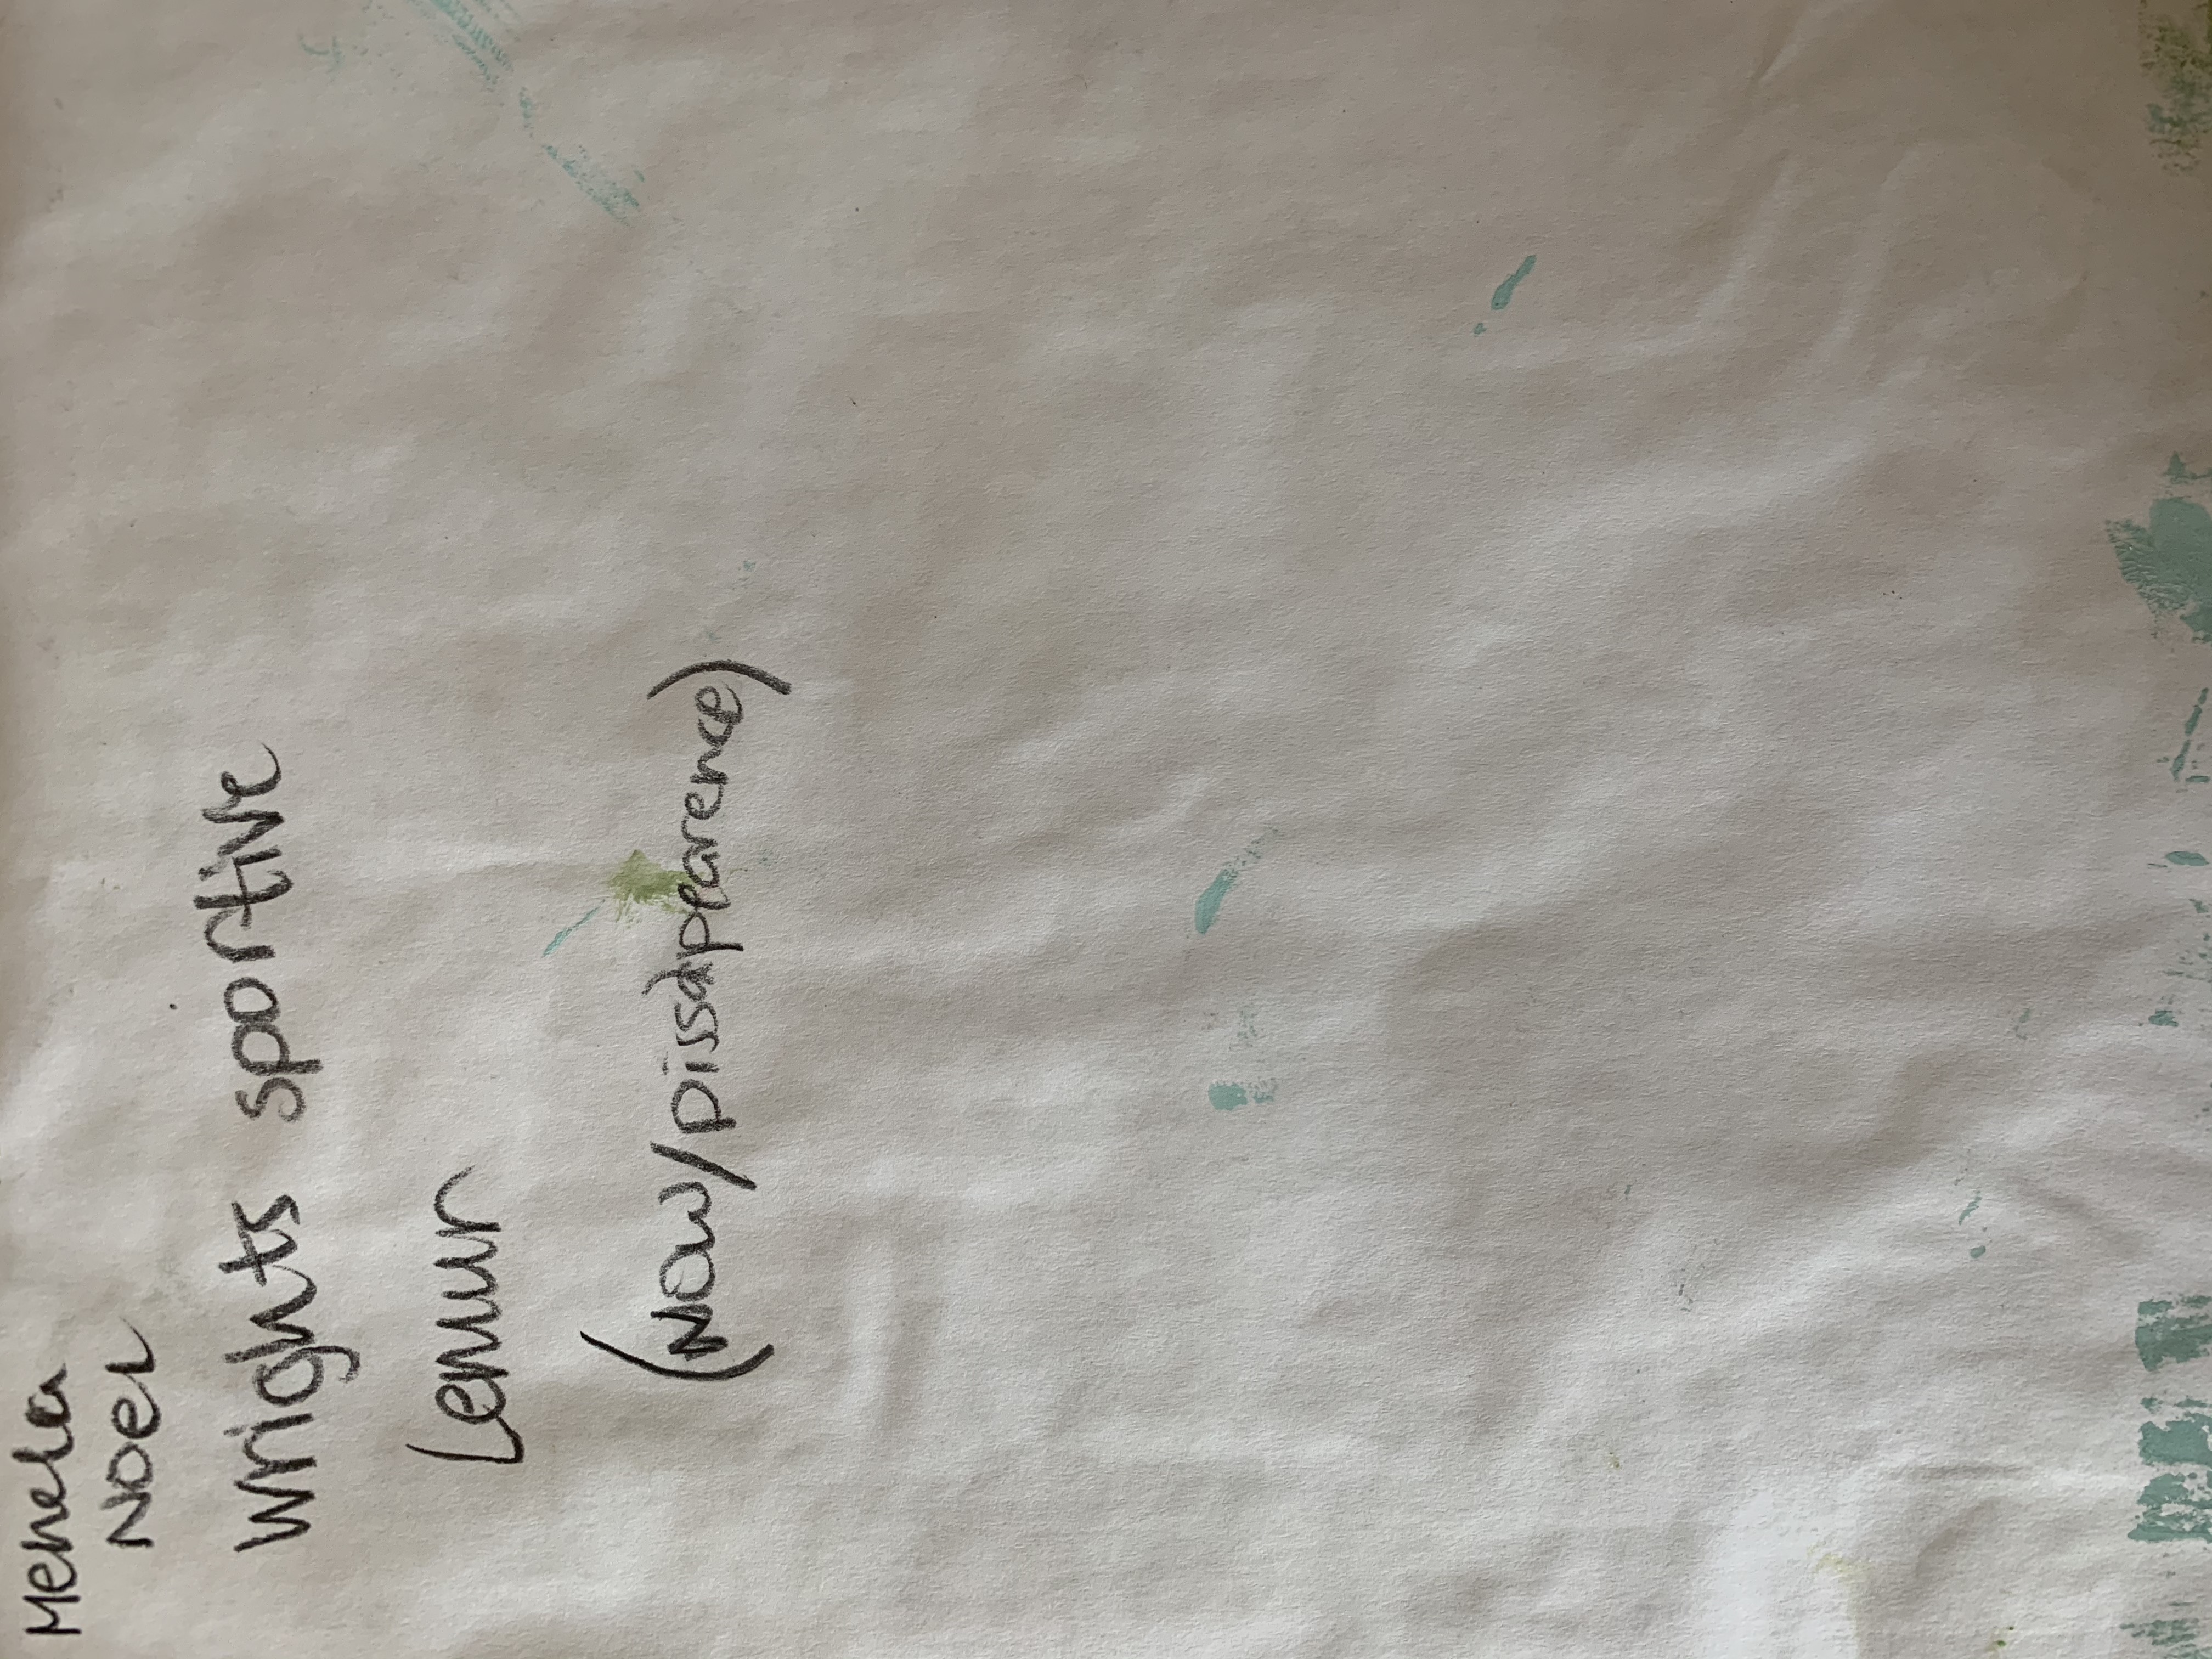 Mehela
Noel
Wrights sportive
Lemur
(NOW/Dissapearence)